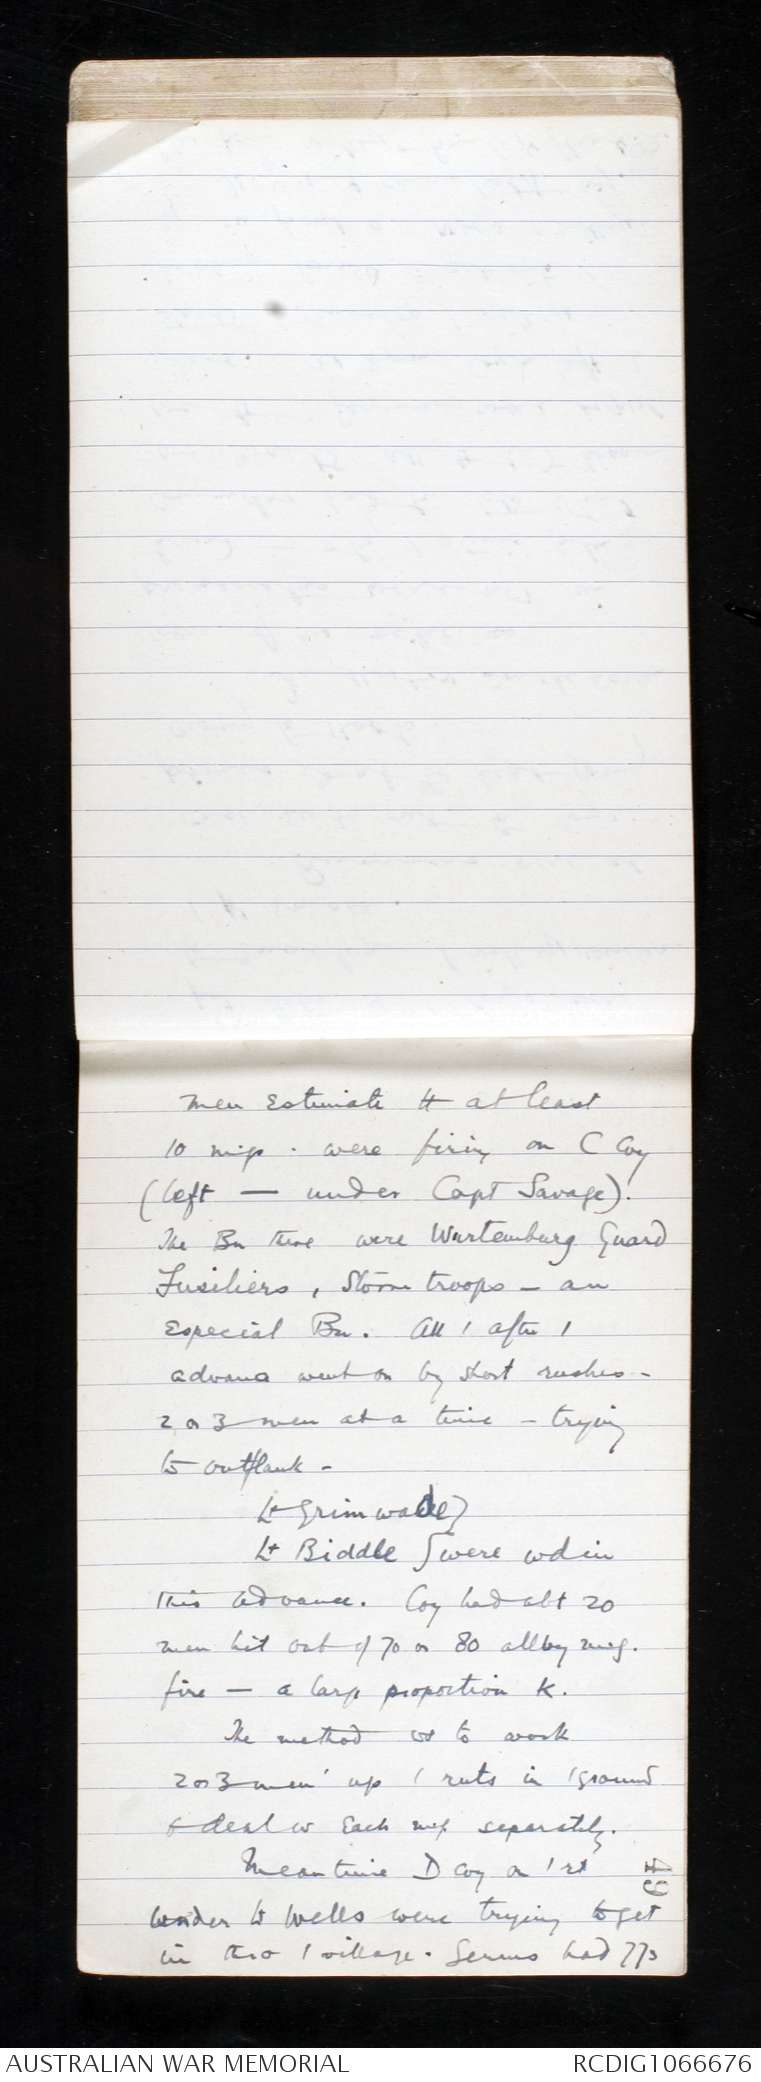 Men estimate tt at least
10 m.gs. were firing on C Coy
(left — under Capt Savage).
The Bn there were Wurtemburg Guard
Fusiliers, Storm troops – an
especial Bn. All / after /
advance went on by short rushes –
2 or 3 men at a time – trying
to outflank –
Lt Grimwade}
Lt Biddle } were wd in
this advance. Coy had abt 20
men hit out of 70 or 80 all by m.g.
fire — a large proportion K.
The method ws to work
2 or 3 men up / ruts in / ground
& deal w each m.g. separately.
Meantime D Coy on / rt
under Lt Wells were trying to get
in thro / village. Germs had 77s
49
AUSTRALIAN WAR MEMORIAL
RCDIG1066676